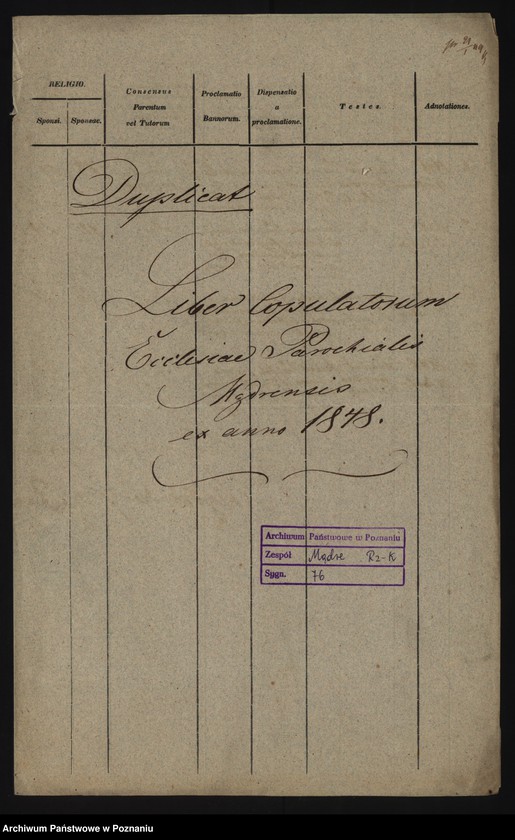 RELIGIO.
Sponsi. Sponsae.
Consensus Parentum vel Tutorum
Proclamatio Bannorum.
Dispensatio a proclamatione.
Testes.
Adnotationes.
Duplicat
Liber Copulatorum
Ecclesiae Parochialis
Mądrensis
ex anno 1848.
Archiwum Państwowe w Poznaniu
Zespół Mądre Rz-K
Sygn. 76
Archiwum Państwowe w Poznaniu